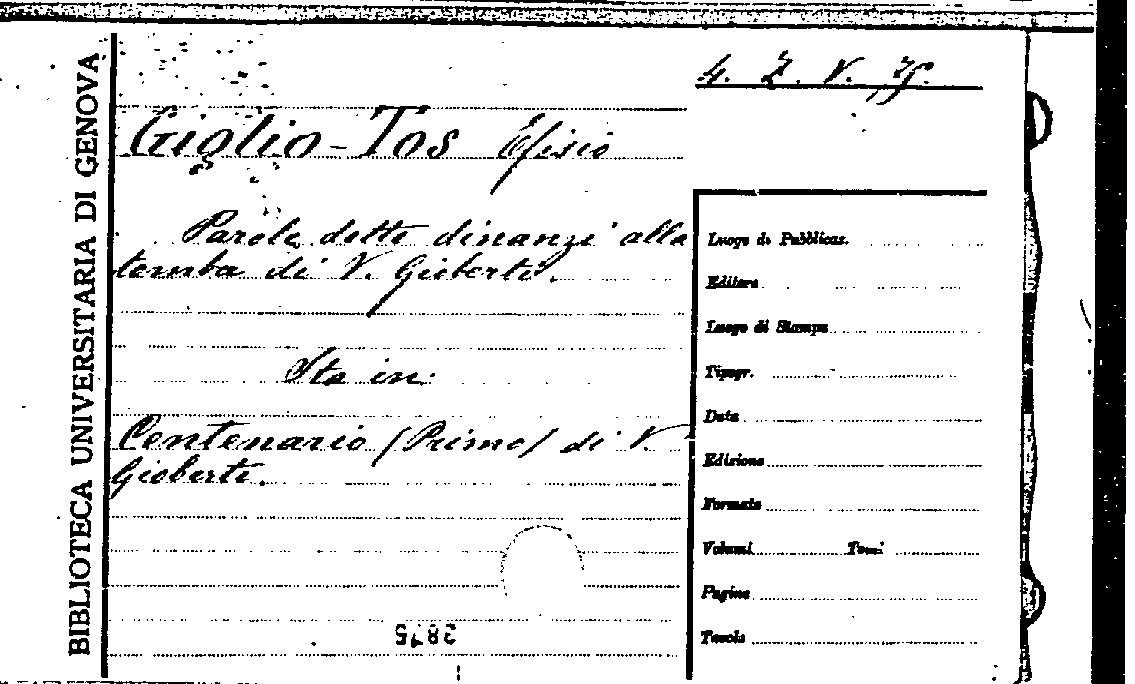 BIBLIOTECA UNIVERSITARIA DI GENOVA
4. Z. V.
Giglio-Tos Efisio
Parole dette dinanzi alla
tomba di V. Gioberti.
Sta in:
Centenario (Primo) di V.
Gioberti.
Luogo di Pubblicaz.
Editore
Luogo di Stampa
Tipogr.
Data
Edizione
Formato
Volumi Tomi
Pagine
Tavole